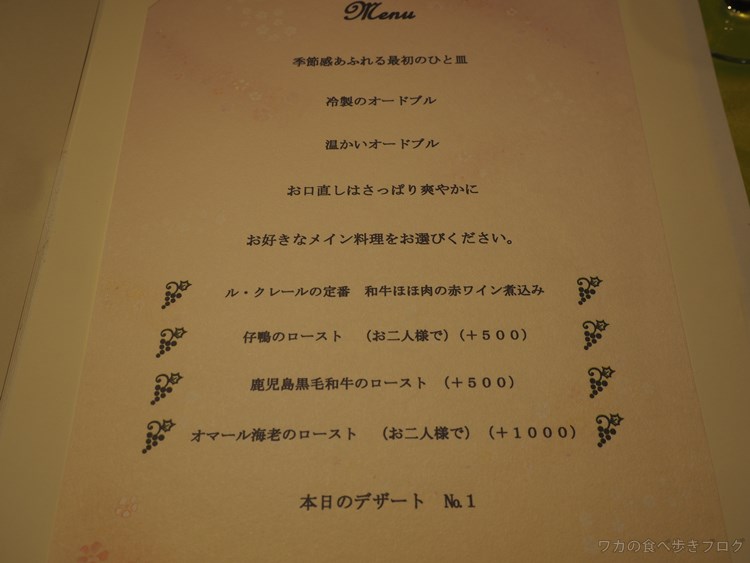 Menu
季節感あふれる最初のひと皿
冷製のオードブル
温かいオードブル
お口直しはさっぱり爽やかに
お好きなメイン料理をお選びください。
ル・クレールの定番　和牛ほほ肉の赤ワイン煮込み
仔鴨のロースト　（お二人様で）（＋５００）
鹿児島黒毛和牛のロースト　（＋５００）
オマール海老のロースト　（お二人様で）　（＋１０００）
本日のデザート　№１
ワカの食べ歩きブログ